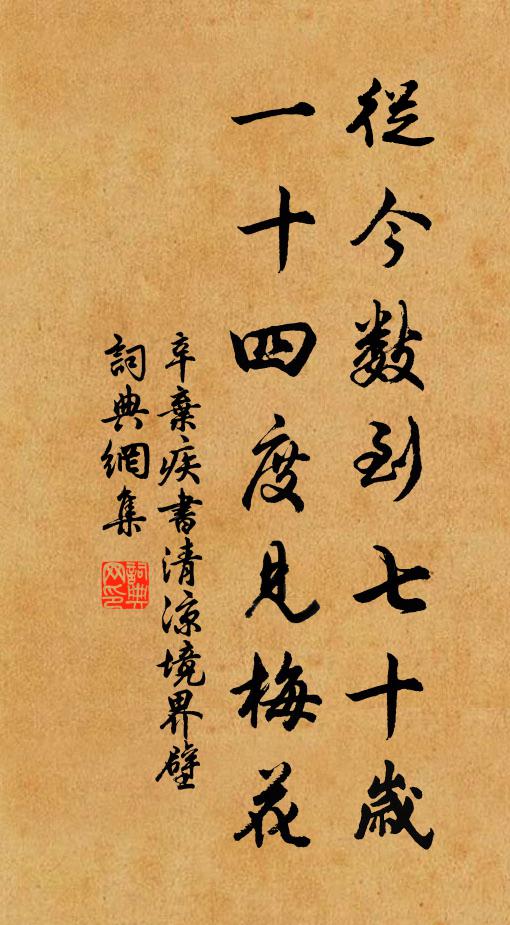 從今數到七十歲
一十四度見梅花
辛棄疾書清涼境界壁
詞典網集
詞典網印